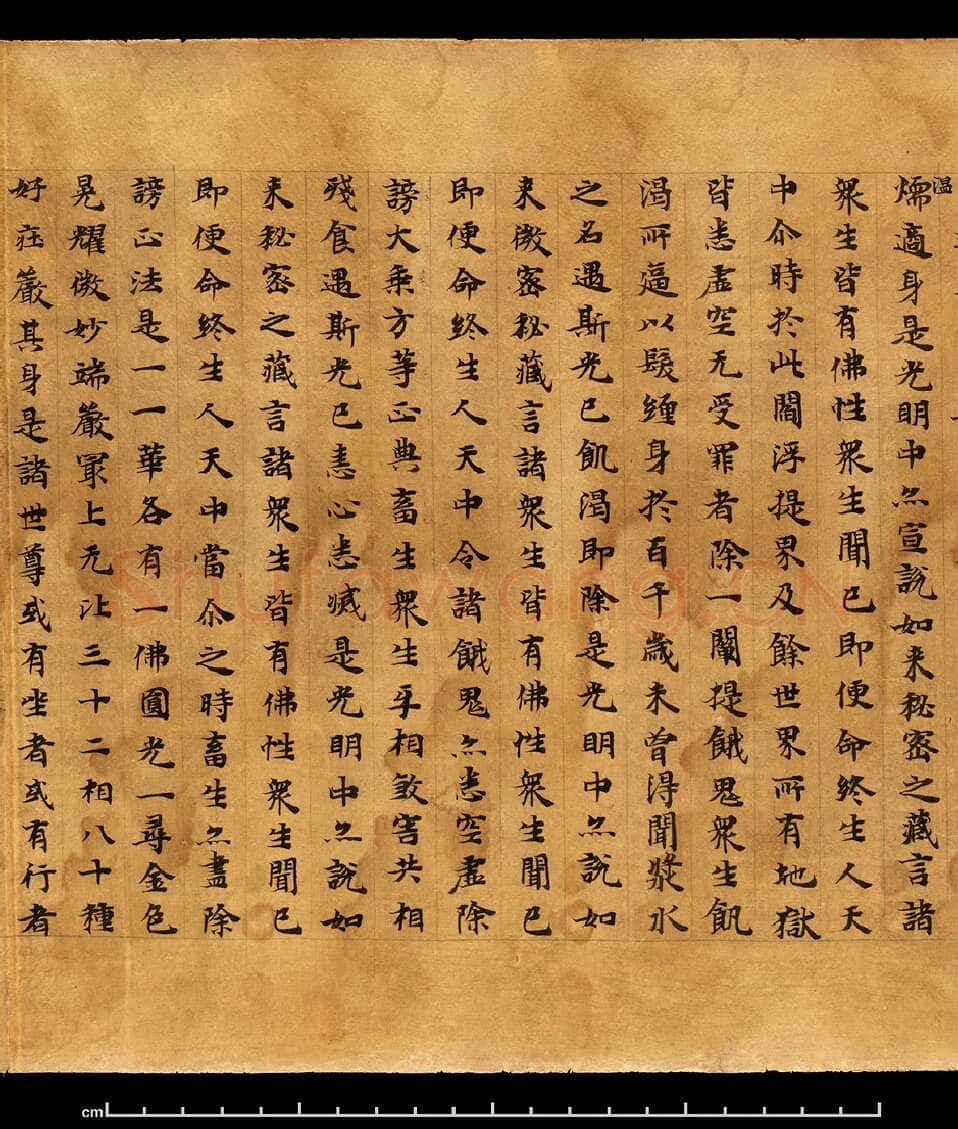 溫
煗適身是光明中亦宣說如来秘密之藏言諸
衆生皆有佛性衆生聞已即便命終生人天
中尒時於此閻浮提界及餘世界所有地獄
皆悉虛空无受罪者除一闡提餓鬼衆生飢
渴所逼以髮纏身於百千歲未曾得聞漿水
之名遇斯光已飢渴即除是光明中亦說如
来微密秘藏言諸衆生皆有佛性衆生聞已
即便命終生人天中令諸餓鬼亦悉空虛除
謗大乗方等正典畜生衆生互相煞害共相
殘食遇斯光已恚心悉滅是光明中亦說如
来秘密之藏言諸衆生皆有佛性衆生聞已
即便命終生人天中當尒之時畜生亦盡除
謗正法是一一華各有一佛圓光一尋金色
晃耀微妙端嚴冣上无比三十二相八十種
好莊嚴其身是諸世尊或有坐者或有行者
Shufawang.CN
cm